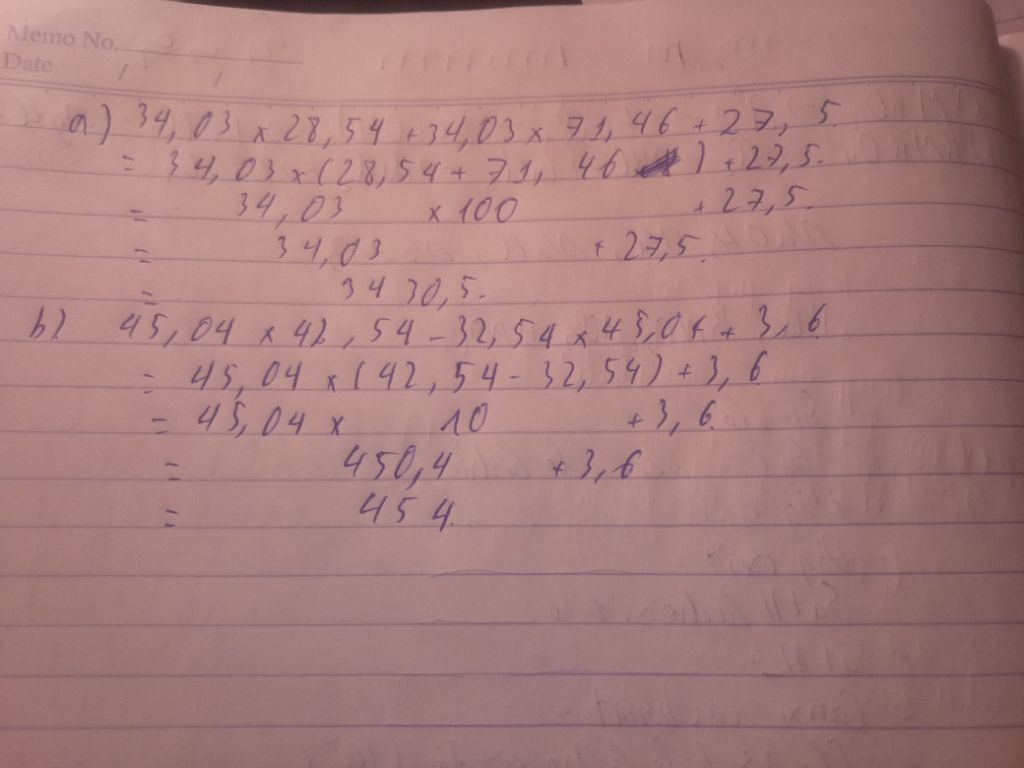 Memo No.
Date
a) 34,03 x 28,54 + 34,03 x 71,46 + 27,5.
= 34,03 x (28,54 + 71,46) + 27,5.
= 34,03 x 100 + 27,5.
= 34,03 + 27,5.
= 3430,5.
b) 45,04 x 42,54 - 32,54 x 45,04 + 3,6
= 45,04 x (42,54 - 32,54) + 3,6
= 45,04 x 10 + 3,6.
= 450,4 + 3,6
= 454.